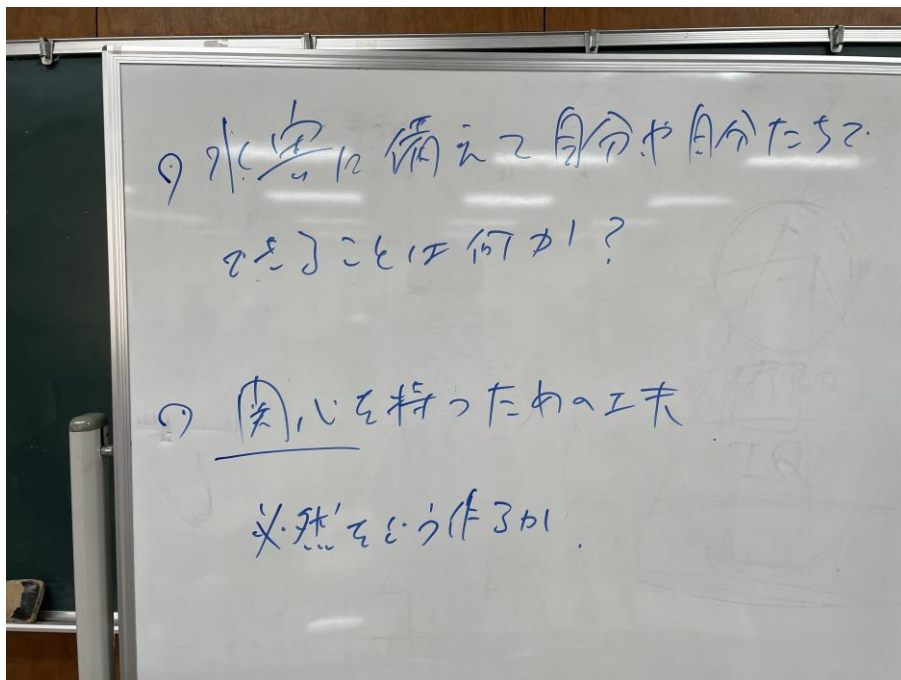 ○水害に備えて自分や自分たちで
できることは何か?
○関心を持つための工夫
必然をどう作るか.